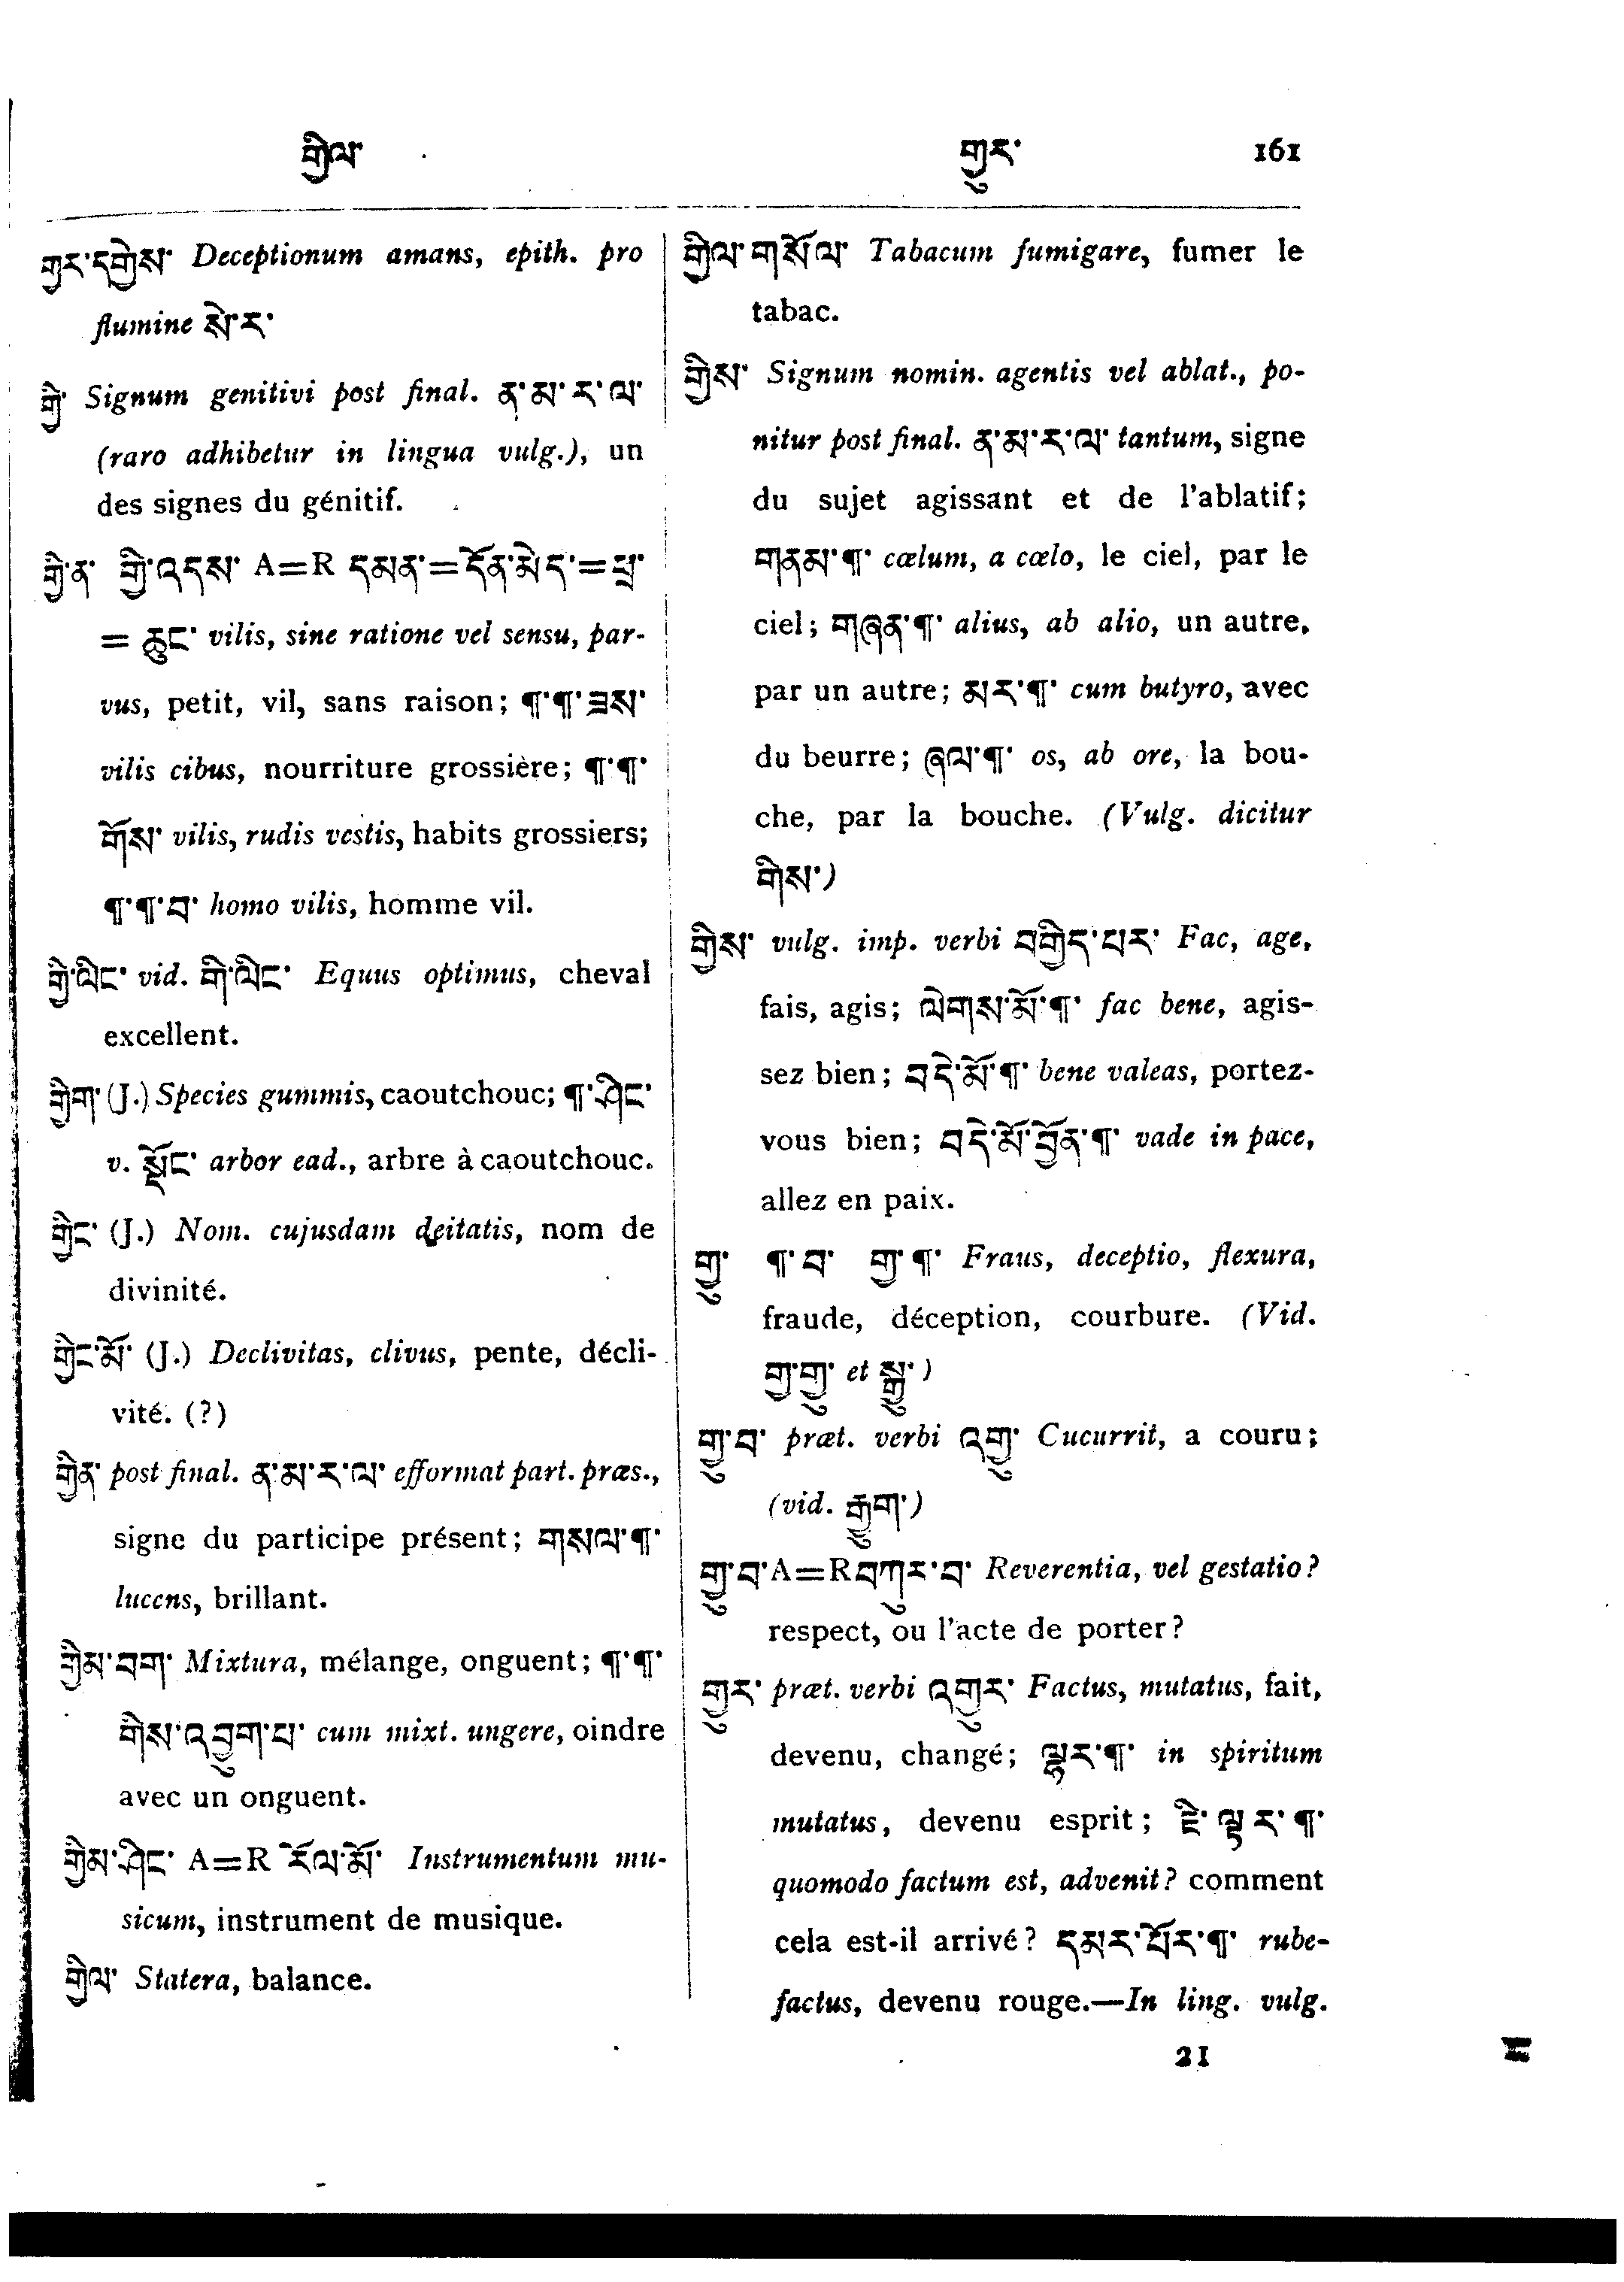 གྱིལ་
གྱུར་
161
གྱར་དགྱེས་ Deceptionum amans, epith. pro
flumine སེ་ར་
གྱི་ Signum genitivi post final. ན་མ་ར་ལ་
(raro adhibetur in lingua vulg.), un
des signes du génitif.
གྱི་ན་ གྱི་འདས་ A=R དམན་=དོན་མེད་=ཕྲ་
= ཆུང་ vilis, sine ratione vel sensu, par-
vus, petit, vil, sans raison; ¶་¶་ཟས་
vilis cibus, nourriture grossière; ¶་¶་
གོས་ vilis, rudis vestis, habits grossiers;
¶་¶་བ་ homo vilis, homme vil.
གྱི་ལིང་ vid. གི་ལིང་ Equus optimus, cheval
excellent.
གྱིག་ (J.) Species gummis, caoutchouc; ¶་ཤིང་
v. སྡོང་ arbor ead., arbre à caoutchouc.
གྱིང་ (J.) Nom. cujusdam deitatis, nom de
divinité.
གྱིང་མོ་ (J.) Declivitas, clivus, pente, décli-
vité. (?)
གྱིན་ post final. ན་མ་ར་ལ་ efformat part. præs.,
signe du participe présent; གསལ་¶་
lucens, brillant.
གྱིམ་བག་ Mixtura, mélange, onguent; ¶་¶་
གིས་འབྱུག་པ་ cum mixt. ungere, oindre
avec un onguent.
གྱིམ་ཤིང་ A=R རོལ་མོ་ Instrumentum mu-
sicum, instrument de musique.
གྱིལ་ Statera, balance.
གྱིལ་གསོལ་ Tabacum fumigare, fumer le
tabac.
གྱིས་ Signum nomin. agentis vel ablat., po-
nitur post final. ན་མ་ར་ལ་ tantum, signe
du sujet agissant et de l'ablatif;
གནམ་¶་ cœlum, a cœlo, le ciel, par le
ciel; གཞན་¶་ alius, ab alio, un autre,
par un autre; མར་¶་ cum butyro, avec
du beurre; ཞལ་¶་ os, ab ore, la bou-
che, par la bouche. (Vulg. dicitur
གིས་)
གྱིས་ vulg. imp. verbi བགྱིད་པར་ Fac, age,
fais, agis; ལེགས་མོ་¶་ fac bene, agis-
sez bien; བདེ་མོ་¶་ bene valeas, portez-
vous bien; བདེ་མོ་བྱོན་¶་ vade in pace,
allez en paix.
གྱུ་ ¶་བ་ གྱ་¶་ Fraus, deceptio, flexura,
fraude, déception, courbure. (Vid.
གྱ་གྱུ་ et སྒྱུ་)
གྱུ་བ་ præt. verbi འགྱུ་ Cucurrit, a couru;
(vid. རྒྱུག་)
གྱུ་བ་ A=R བཀུར་བ་ Reverentia, vel gestatio?
respect, ou l'acte de porter?
གྱུར་ præt. verbi འགྱུར་ Factus, mutatus, fait,
devenu, changé; ལྷར་¶་ in spiritum
mutatus, devenu esprit; ཇི་ལྟར་¶་
quomodo factum est, advenit? comment
cela est-il arrivé? དམར་པོར་¶་ rube-
factus, devenu rouge.—In ling. vulg.
21